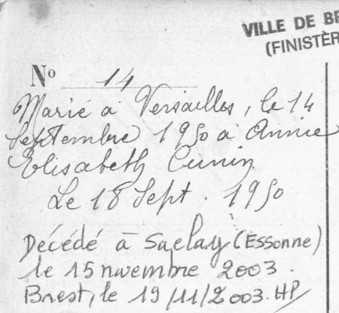 VILLE DE BR
(FINISTÈR
No 14
Marié à Versailles, le 14
Septembre 1950 à Annie
Elisabeth Cunin
Le 18 Sept. 1950
Décédé à Saclay (Essonne)
le 15 novembre 2003.
Brest, le 19/11/2003. HP/